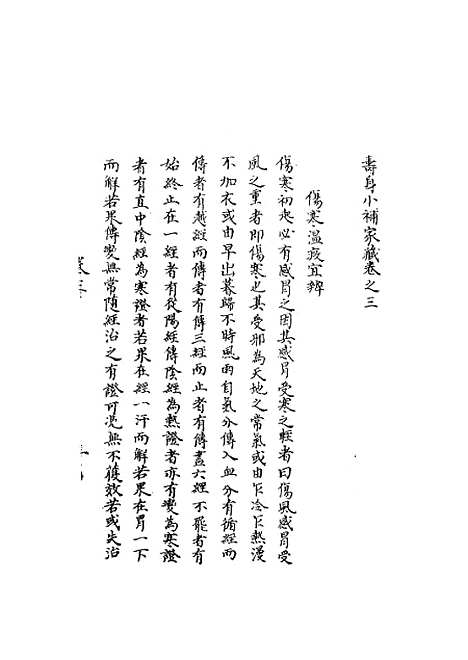 壽身小補家藏卷之三
傷寒溫疫宜辨
傷寒初起必有感冒之因其感冒受寒之輕者曰傷風感冒受
風之重者即傷寒也其受邪為天地之常氣或由乍冷乍熱漫
不加衣或由早出暮歸不時風雨自氣分傳入血分有循經而
傳者有越經而傳者有傳三經而止者有傳盡六經不罷者有
始終止在一經者有從陽經傳陰經為熱證者亦有變為寒證
者有直中陰經為寒證者若果在經一汗而解若果在胃一下
而解若果傳變無常隨經治之有證可凴無不獲效若或失治